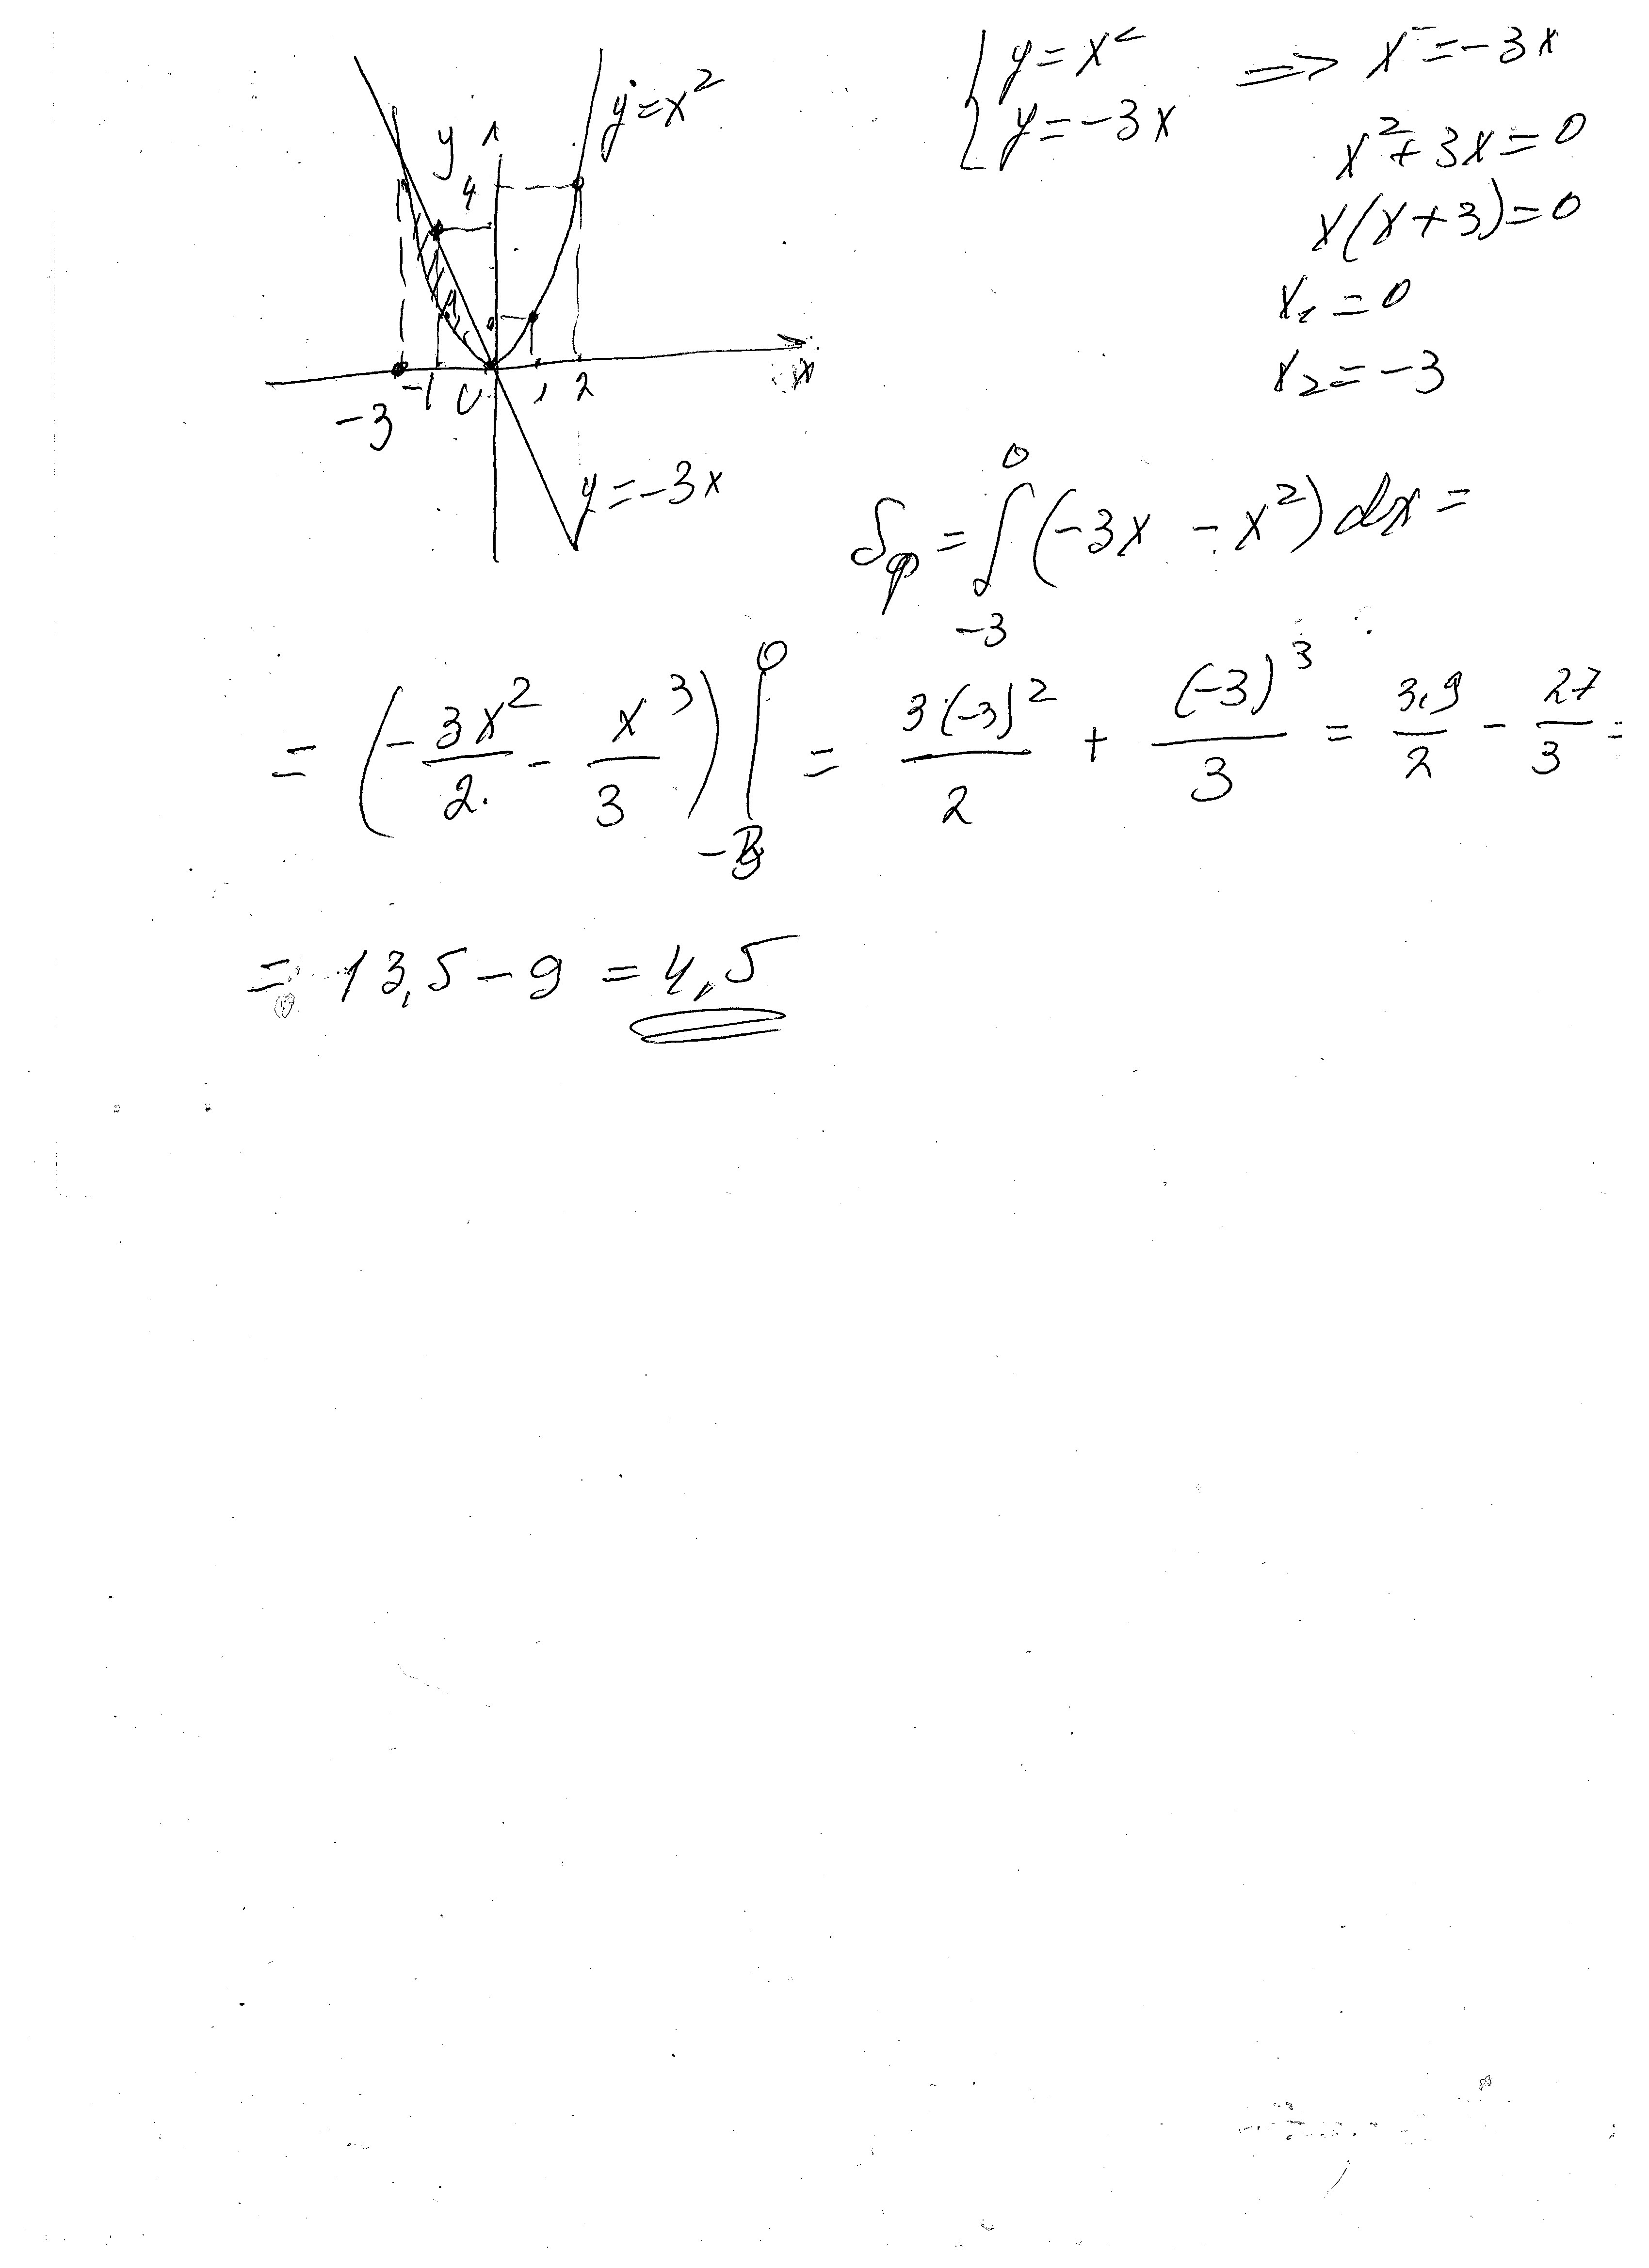 y
y=x²
4
-3 -1 0 1 2 x
y=-3x
{ y=x²
y=-3x => x =-3x
x²+3x=0
x(x+3)=0
x₁=0
x₂=-3
Sφ = ∫₋₃⁰ (-3x - x²)dx =
= (-3x²/2 - x³/3)|₋₃⁰ = 3·(-3)²/2 + (-3)³/3 = 3·9/2 - 27/3 =
= 13,5-9 = 4,5